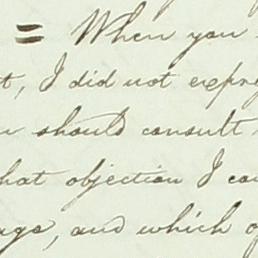 = When you
t, I did not expre
u should consult
hat objection I cou
ago, and which o